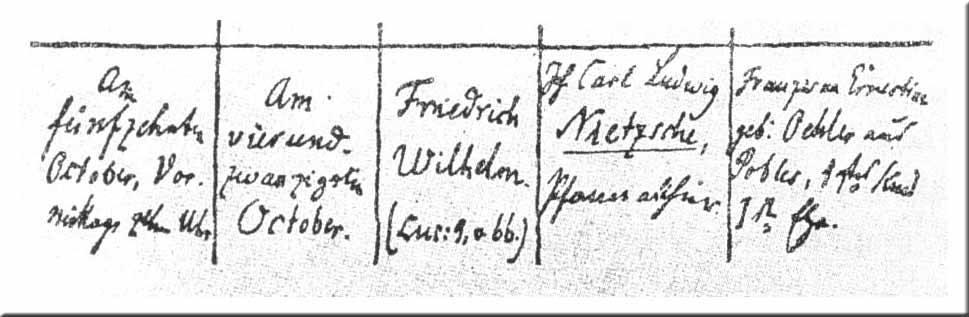 Am
fünfzehnten
October, Vor-
mittags zehn Uhr
Am
vierund-
zwanzigsten
October.
Friedrich
Wilhelm.
(Luc: 1, v 66.)
Carl Ludwig
Nietzsche,
Pfarrer allhier.
Franziska Ernestine
geb: Oehler aus
Pobles, Kind
Ehe.